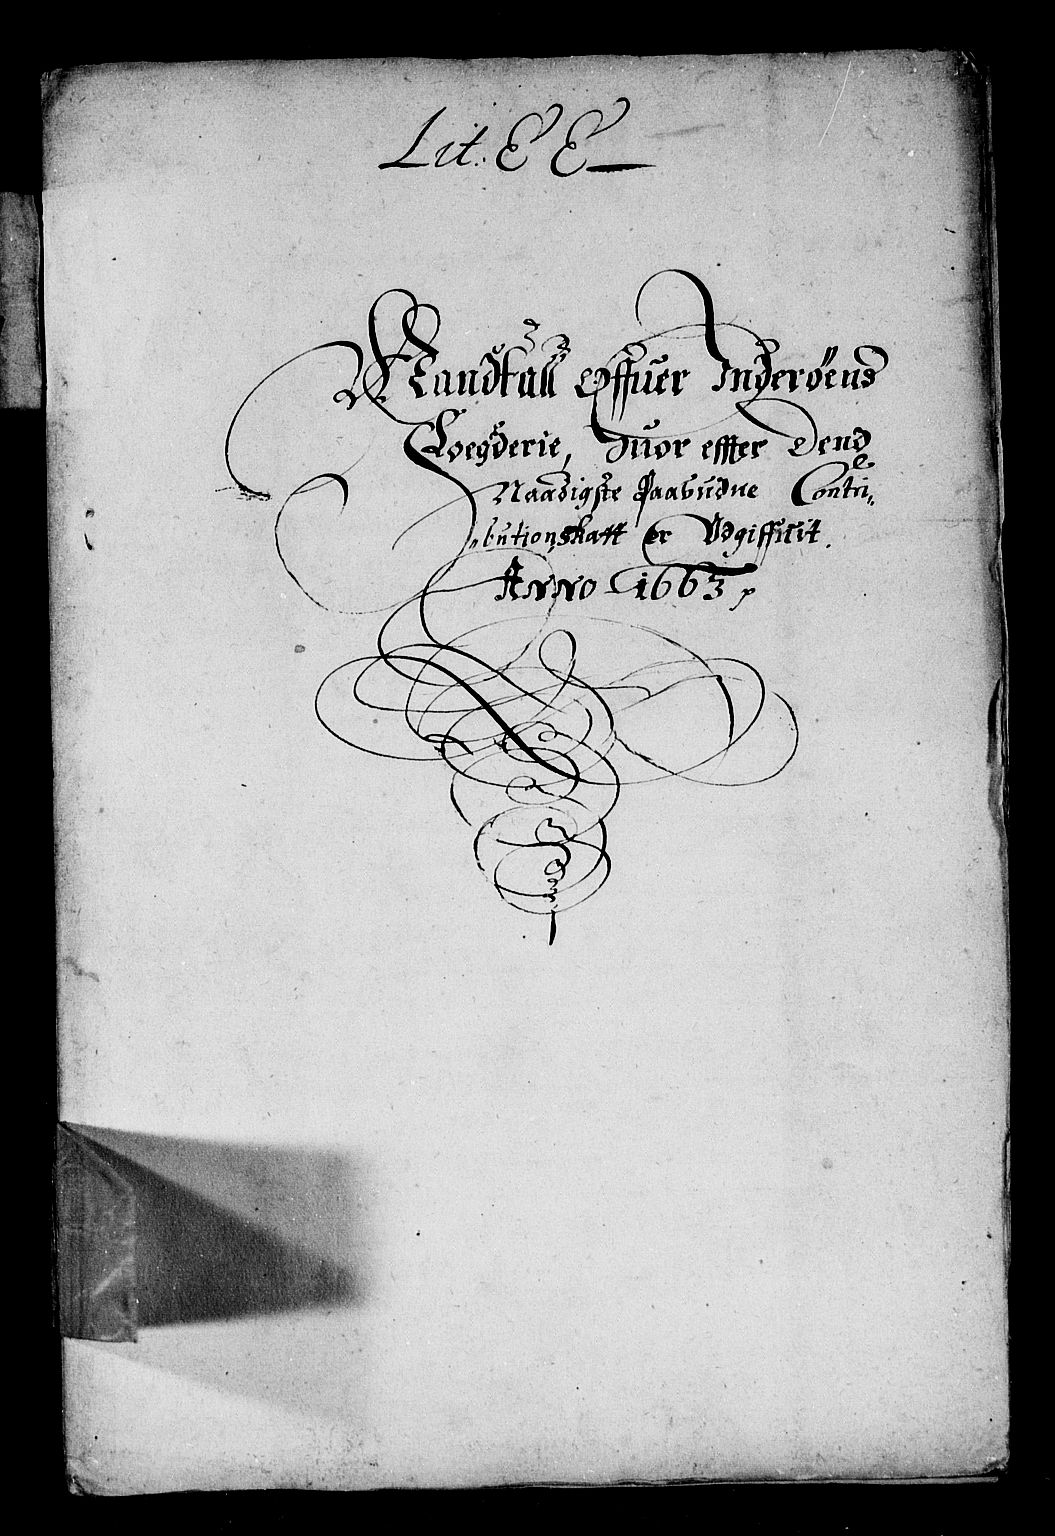 Lit. E E
Mandtall Offuer Inderøens
Foegderie, Huor effter Dend
Naadigste Paabudne Contri„
„butionskatt er Udgiffuit.
Anno 1663